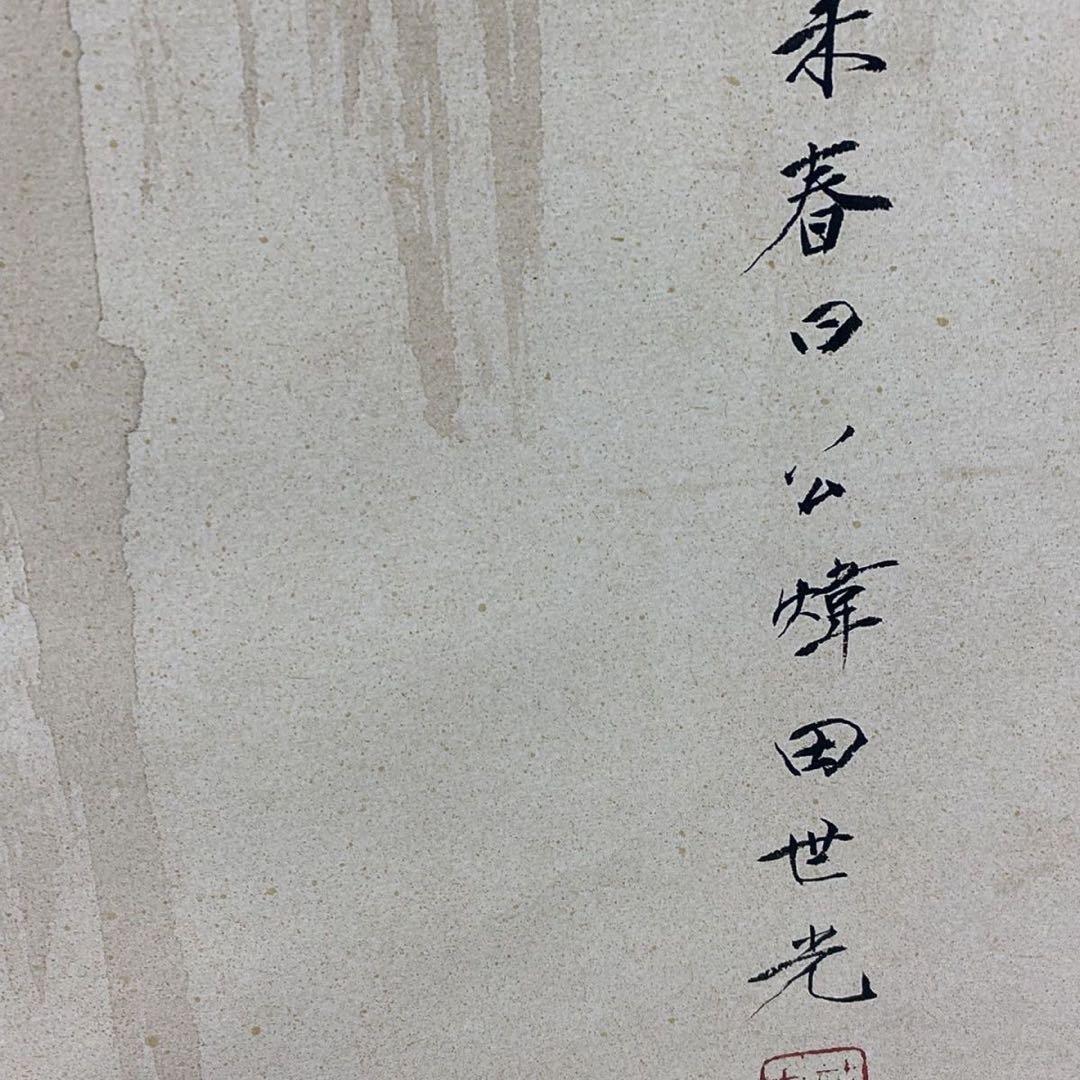 未春日公煒田世光